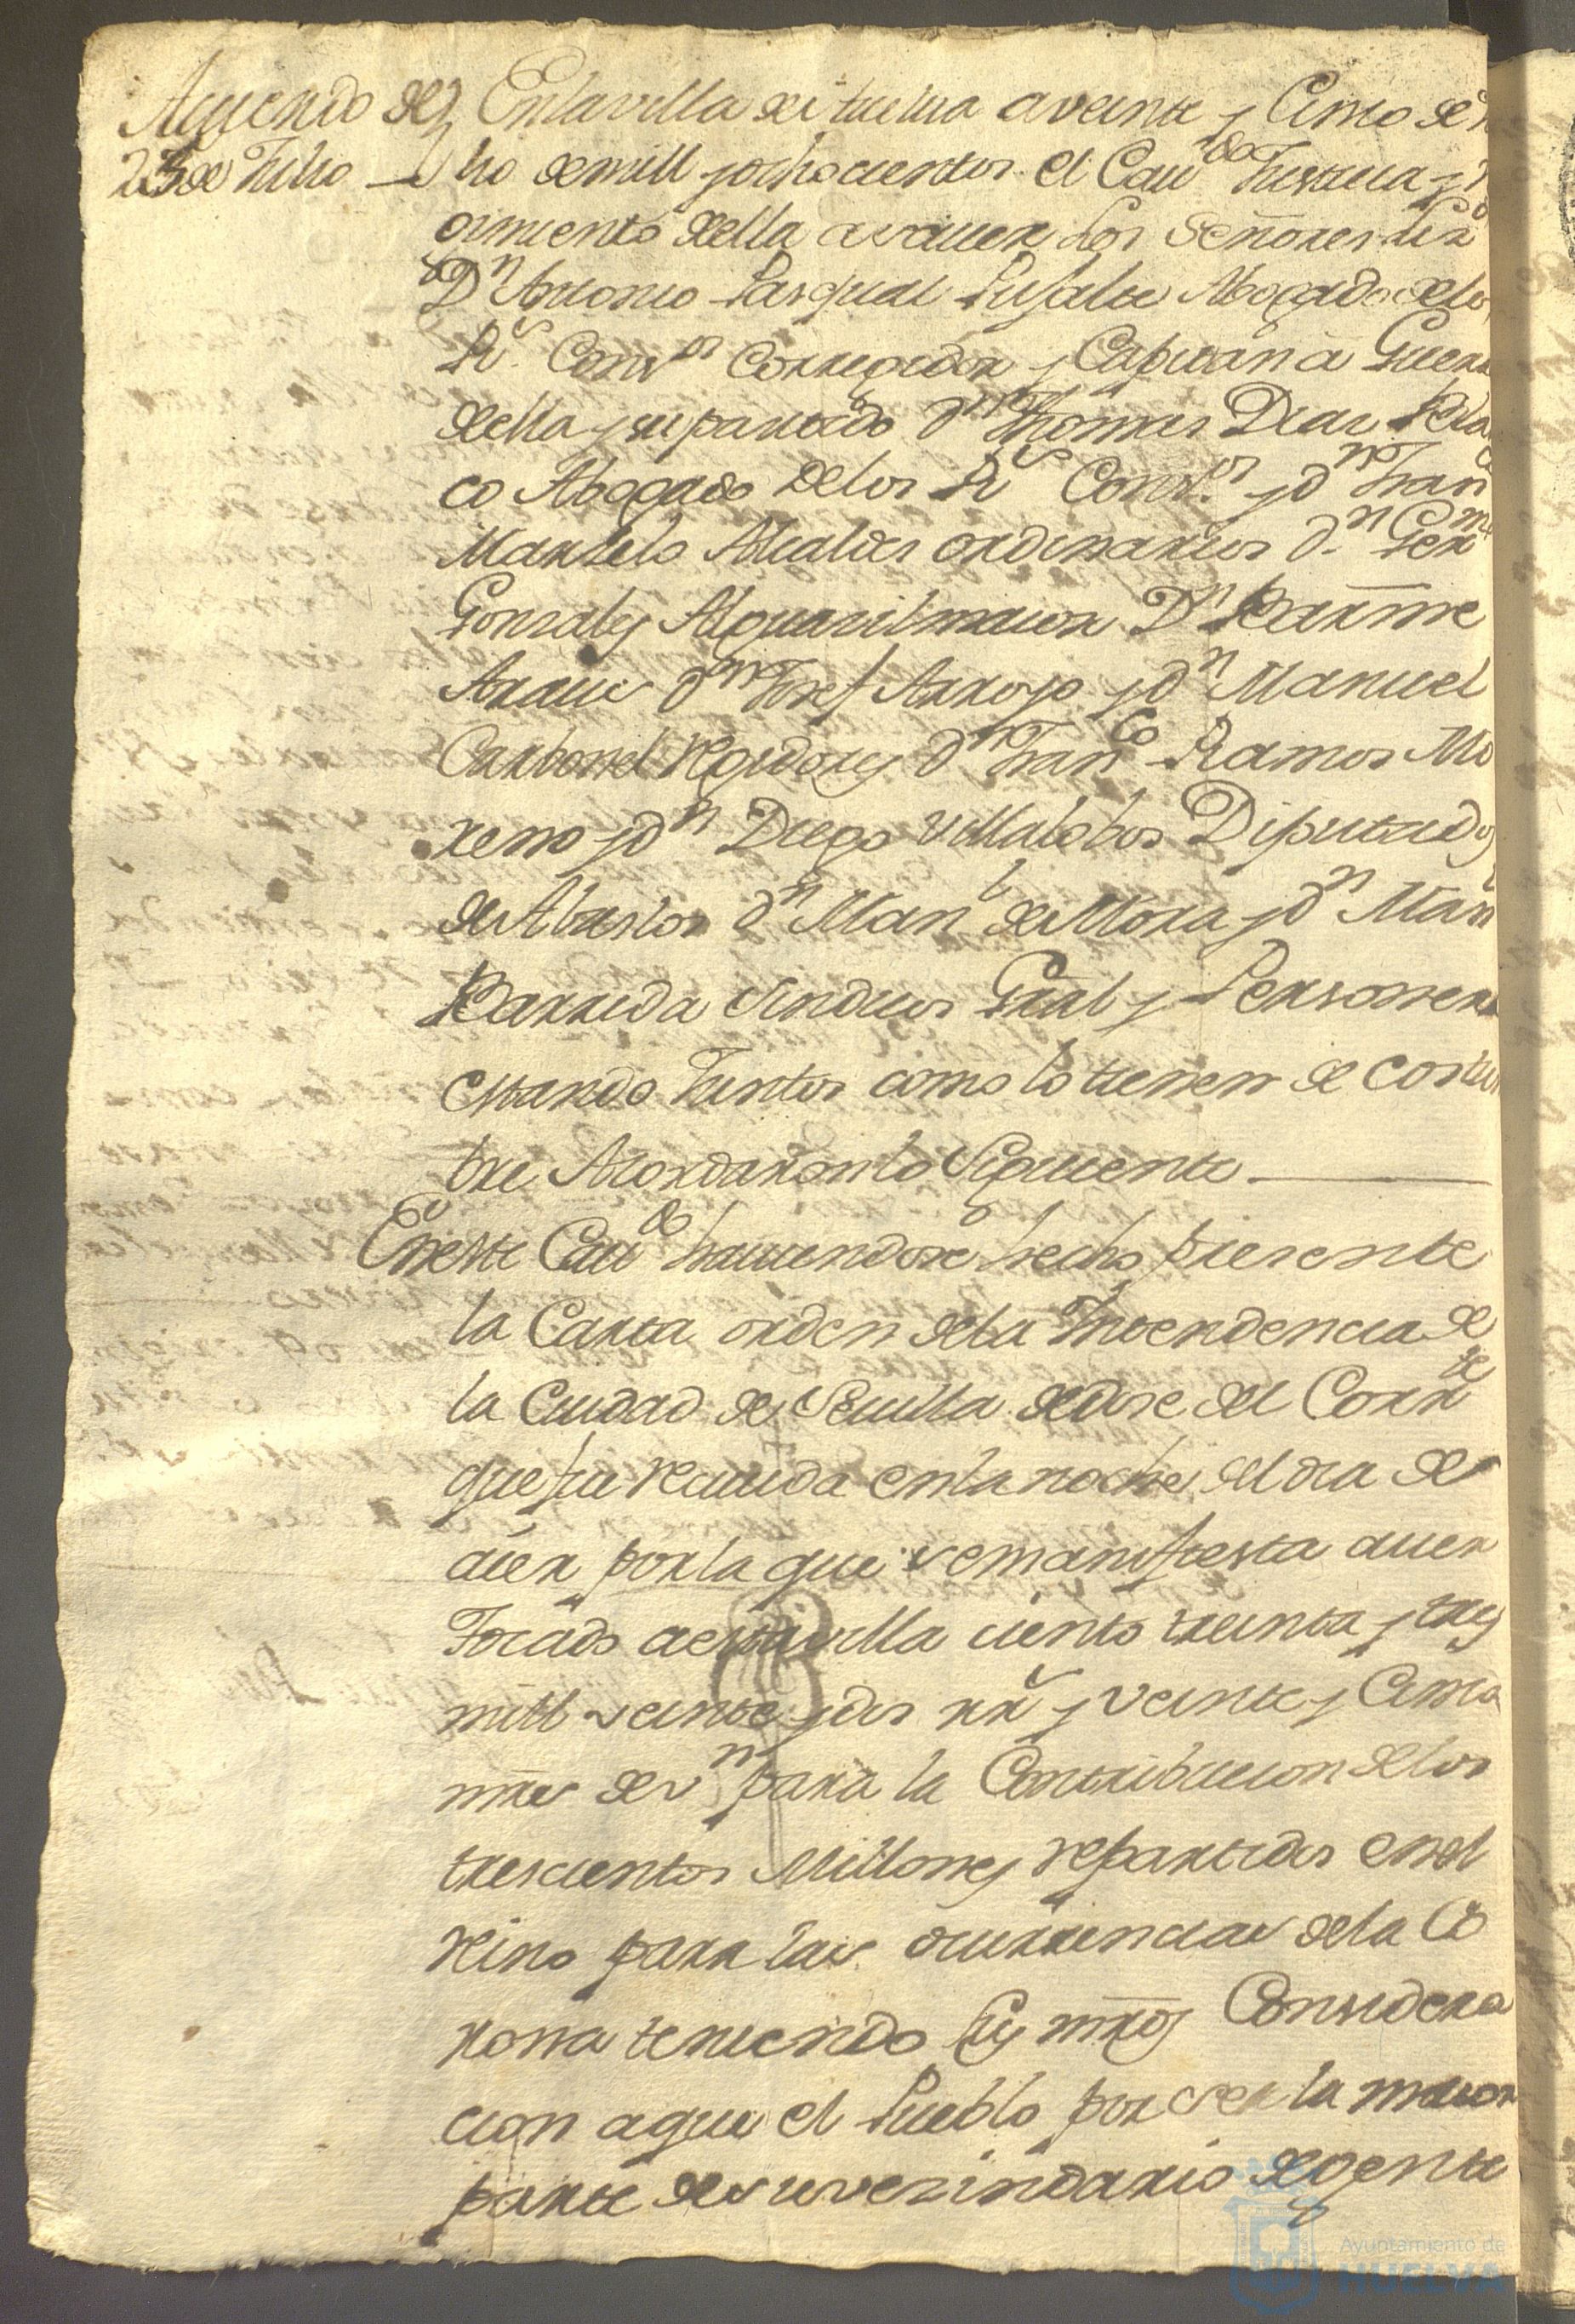 Acuerdo de
25 de Julio
En la villa de Huelva a veinte y Cinco de
lio de mill y ochocientos. el Cavdo Justicia y
gimiento della a saver Los Señores Lizdo
Dn Antonio Pasqual Pusalte Abogado de los
Rs Consos Corregidor y Capitan a Guerra
della y su partido dn Thomas Diaz
co Abogado de los Rs Consos y dn Franco
Marzelo Alcaldes ordinarios dn Germo
Gonzales Alguazil maior Dn Barme
Araus dn Josef Arroyo y dn Manuel
Carbonel Regidores dn Franco Ramos Mo
reno y dn Diego Villalobos Diputados
de Abastos dn Manl de Mora y dn Manl
Barreda Sindicos Gral y Personero
estando Juntos como lo tienen de costum
bre Acordaron lo Siguiente
En este Cavdo haviendose hecho presente
la Carta orden de la Intendencia de
la Ciudad de Sevilla de dose del Corrte
que fue recivida en la noche del dia de
aier por la que se manifiesta aver
Tocado a esta villa ciento treinta y tres
mill veinte y dos rrs y veinte y Cinco
mrs de vn para la Contribucion de los
trescientos Millones repartidos en el
reino para las ocurrencias de la Co
rona teniendo Sus mrds Considera
cion a que el Pueblo por ser la maior
parte de su vezindario de gente
Ayuntamiento de
HUELVA